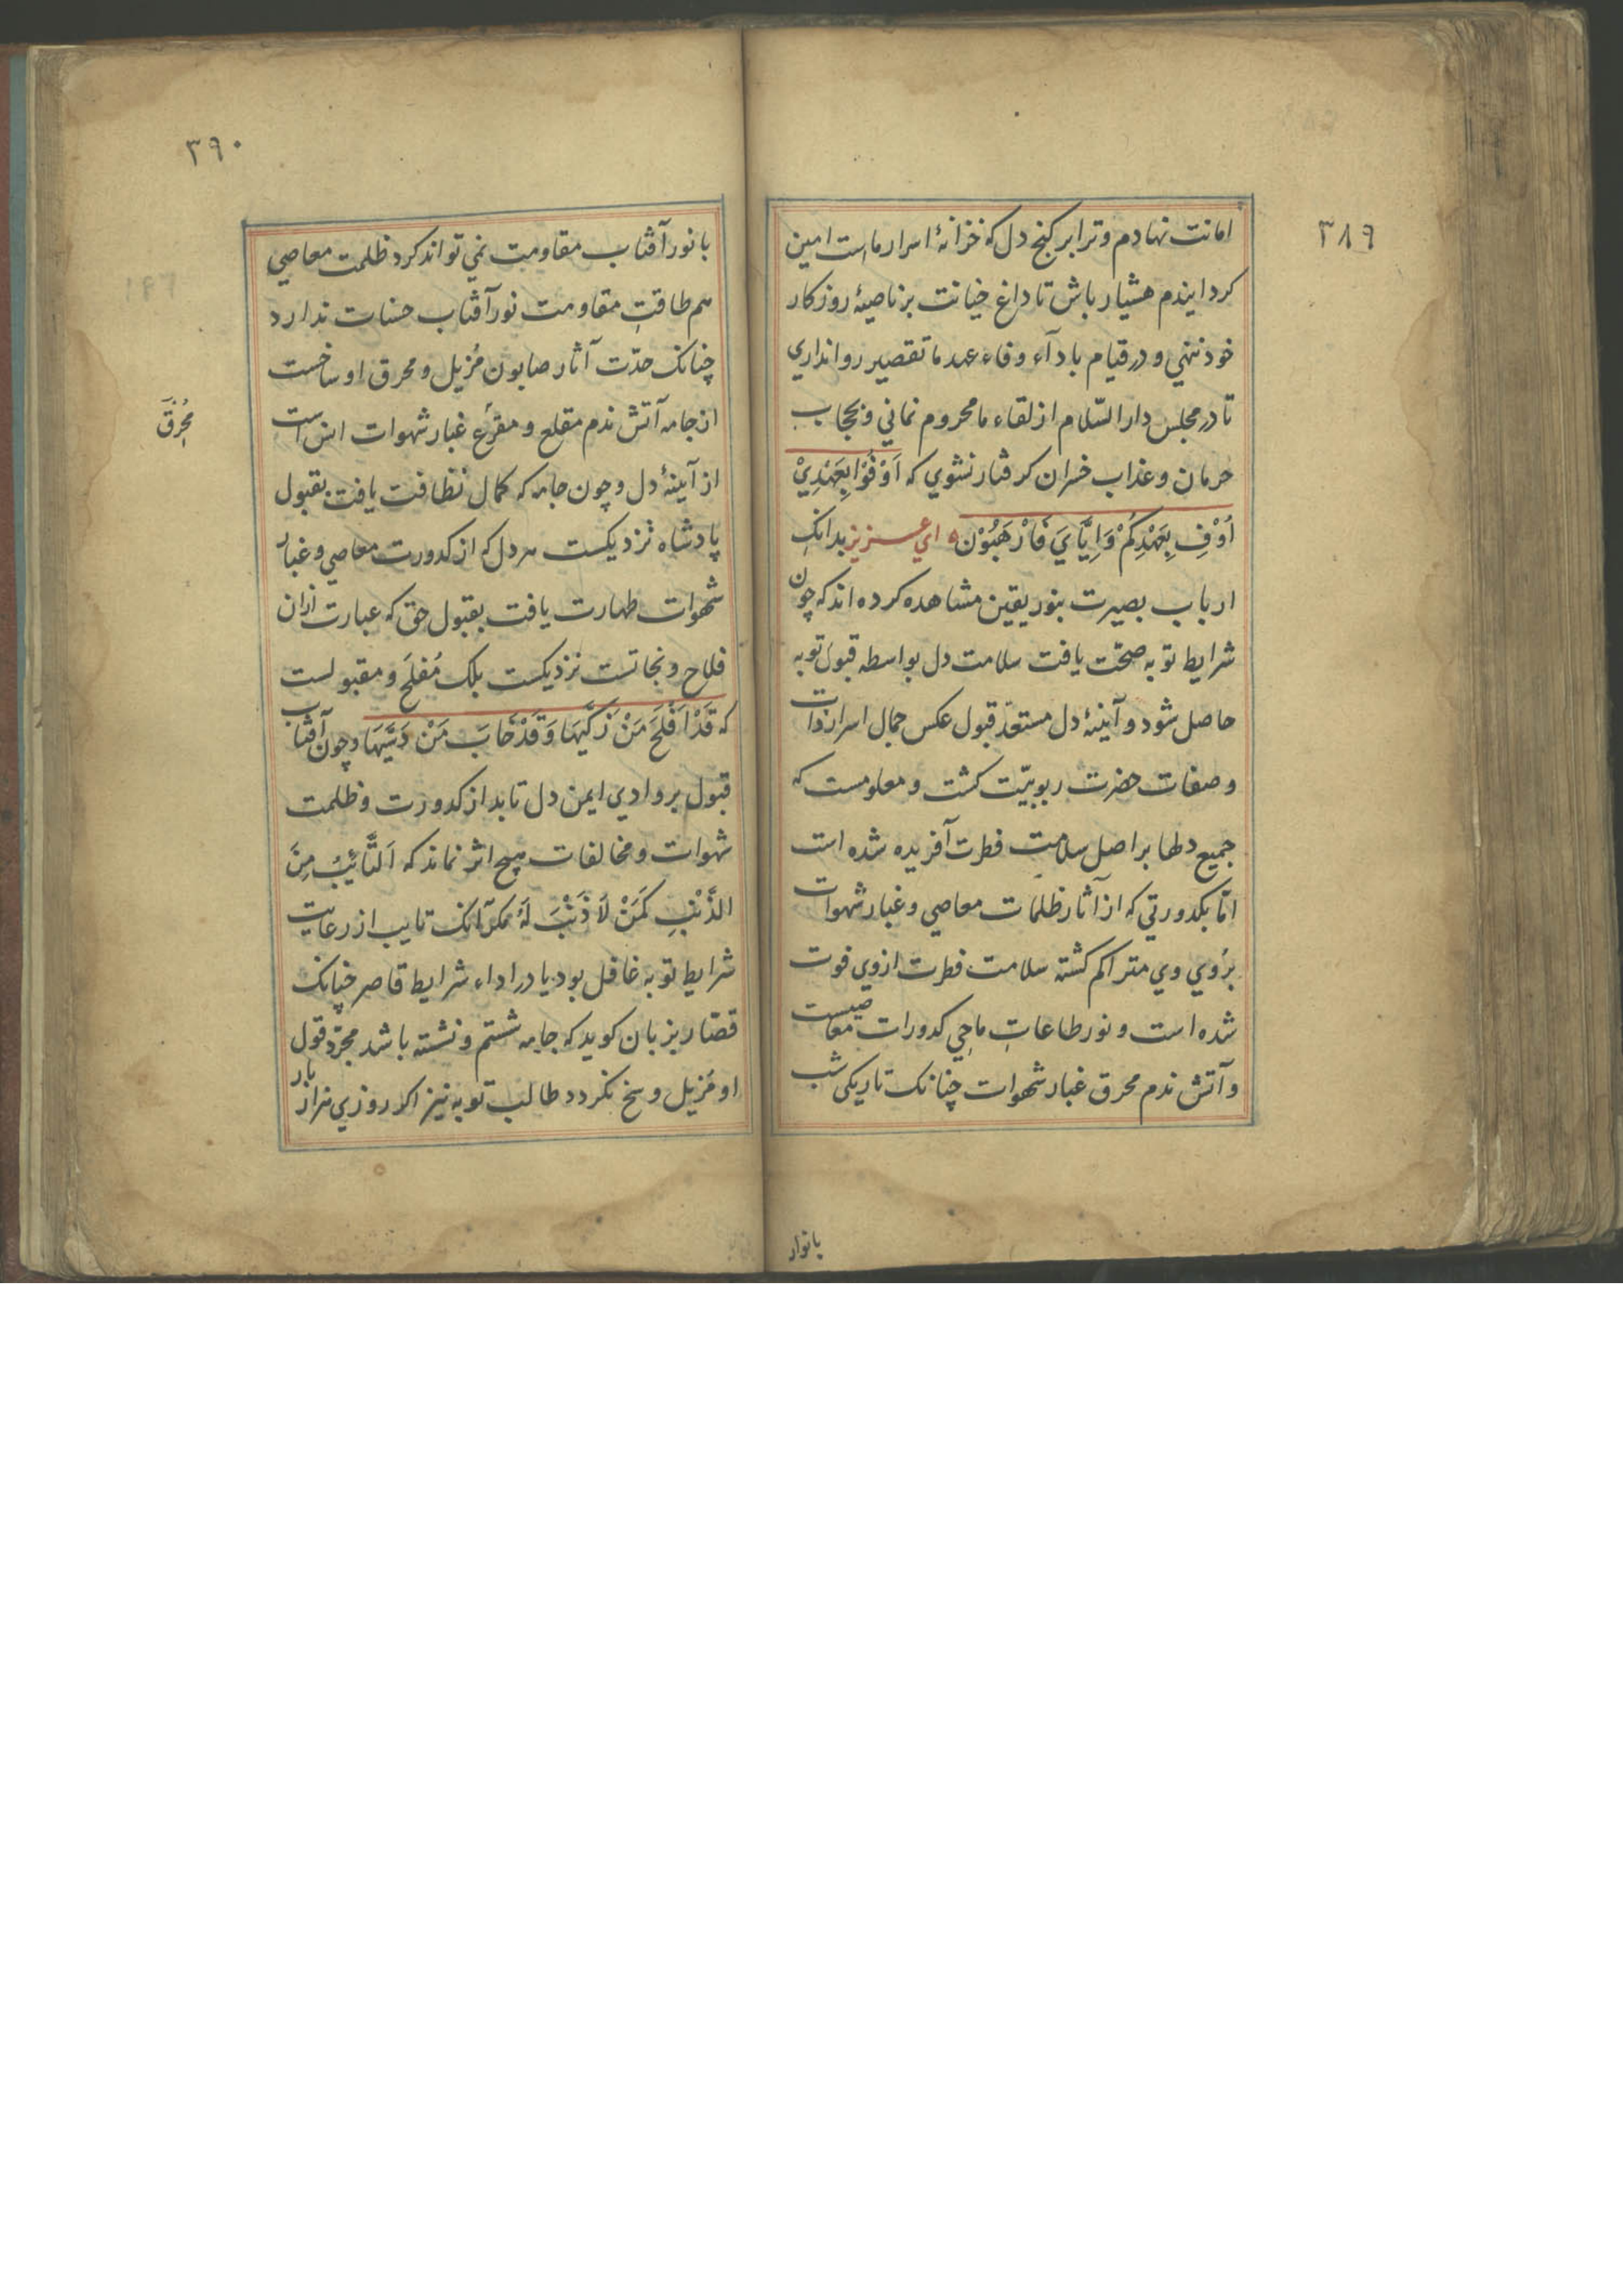 ۳۸۹
امانت نهادم و ترا بر کنج دل که خزانۀ اسرار ماست امین
کردایندم هشیار باش تا داغ خیانت بر ناصیۀ روزکار
خود ننهي و در قیام بادآء وفاء عهد ما تقصیر روا نداري
تا در مجلس دار السّلام از لقاء ما محروم نماني و بحجاب
حرمان و عذاب خسران کرفتار نشوي که اَوْفُوْا بِعَهْدِيْ
اُوْفِ بِعَهْدِكُمْ وَاِيَّايَ فَارْهَبُوْن ه اي عزیز بدانک
ارباب بصیرت بنور یقین مشاهده کرده اند که چون
شرایط توبه صحّت یافت سلامت دل بواسطه قبول توبه
حاصل شود و آینۀ دل مستعدّ قبول عکس جمال اسرار ذات
و صفات حضرت ربوبیّت کشت و معلومست که
جمیع دلها بر اصل سلامت فطرت آفریده شده است
امّا بکدورتي که از آثار ظلمات معاصي و غبار شهوات
بر روي وي متراکم کشته سلامت فطرت از وي فوت
شده است و نور طاعات ماحِي کدورات معاصیست
و آتش ندم محرق غبار شهوات چنانک تاریکی شب
بانوار
۳۹۰
با نور آفتاب مقاومت نمي تواند کرد ظلمت معاصي
هم طاقتِ مقاومت نور آفتاب حسنات ندارد
چنانک حدّت آثار صابون مُزیل و محرق اوساخست
از جامه آتش ندم مقلع و مفرّع غبار شهوات انس است
از آینۀ دل و چون جامه که کمال نظافت یافت بقبول
پادشاه نزدیکست هر دل که از کدورت معاصي و غبار
شهوات طهارت یافت بقبول حق که عبارت ازان
فلاح و نجاتست نزدیکست بلک مُفلح و مقبولست
که قَدْ اَفْلَحَ مَنْ زَكّٰيهَا وَقَدْ خَابَ مَنْ دَسّٰيهَا و چون آفتاب
قبول بر وادي ایمن دل تابد از کدورت و ظلمت
شهوات و مخالفات هیچ اثر نماند که اَلتَّائِبُ مِنَ
الذَّنْبِ كَمَنْ لَا ذَنْبَ لَهُ مکر آنک تایب از رعایت
شرایط توبه غافل بود یا در اداء شرایط قاصر چنانک
قصّار بزبان کوید که جامه شستم و نشسته باشد مجرّد قول
او مُزیل وسخ نکردد طالب توبه نیز اکر روزي هزار بار
مُحْرِقَ